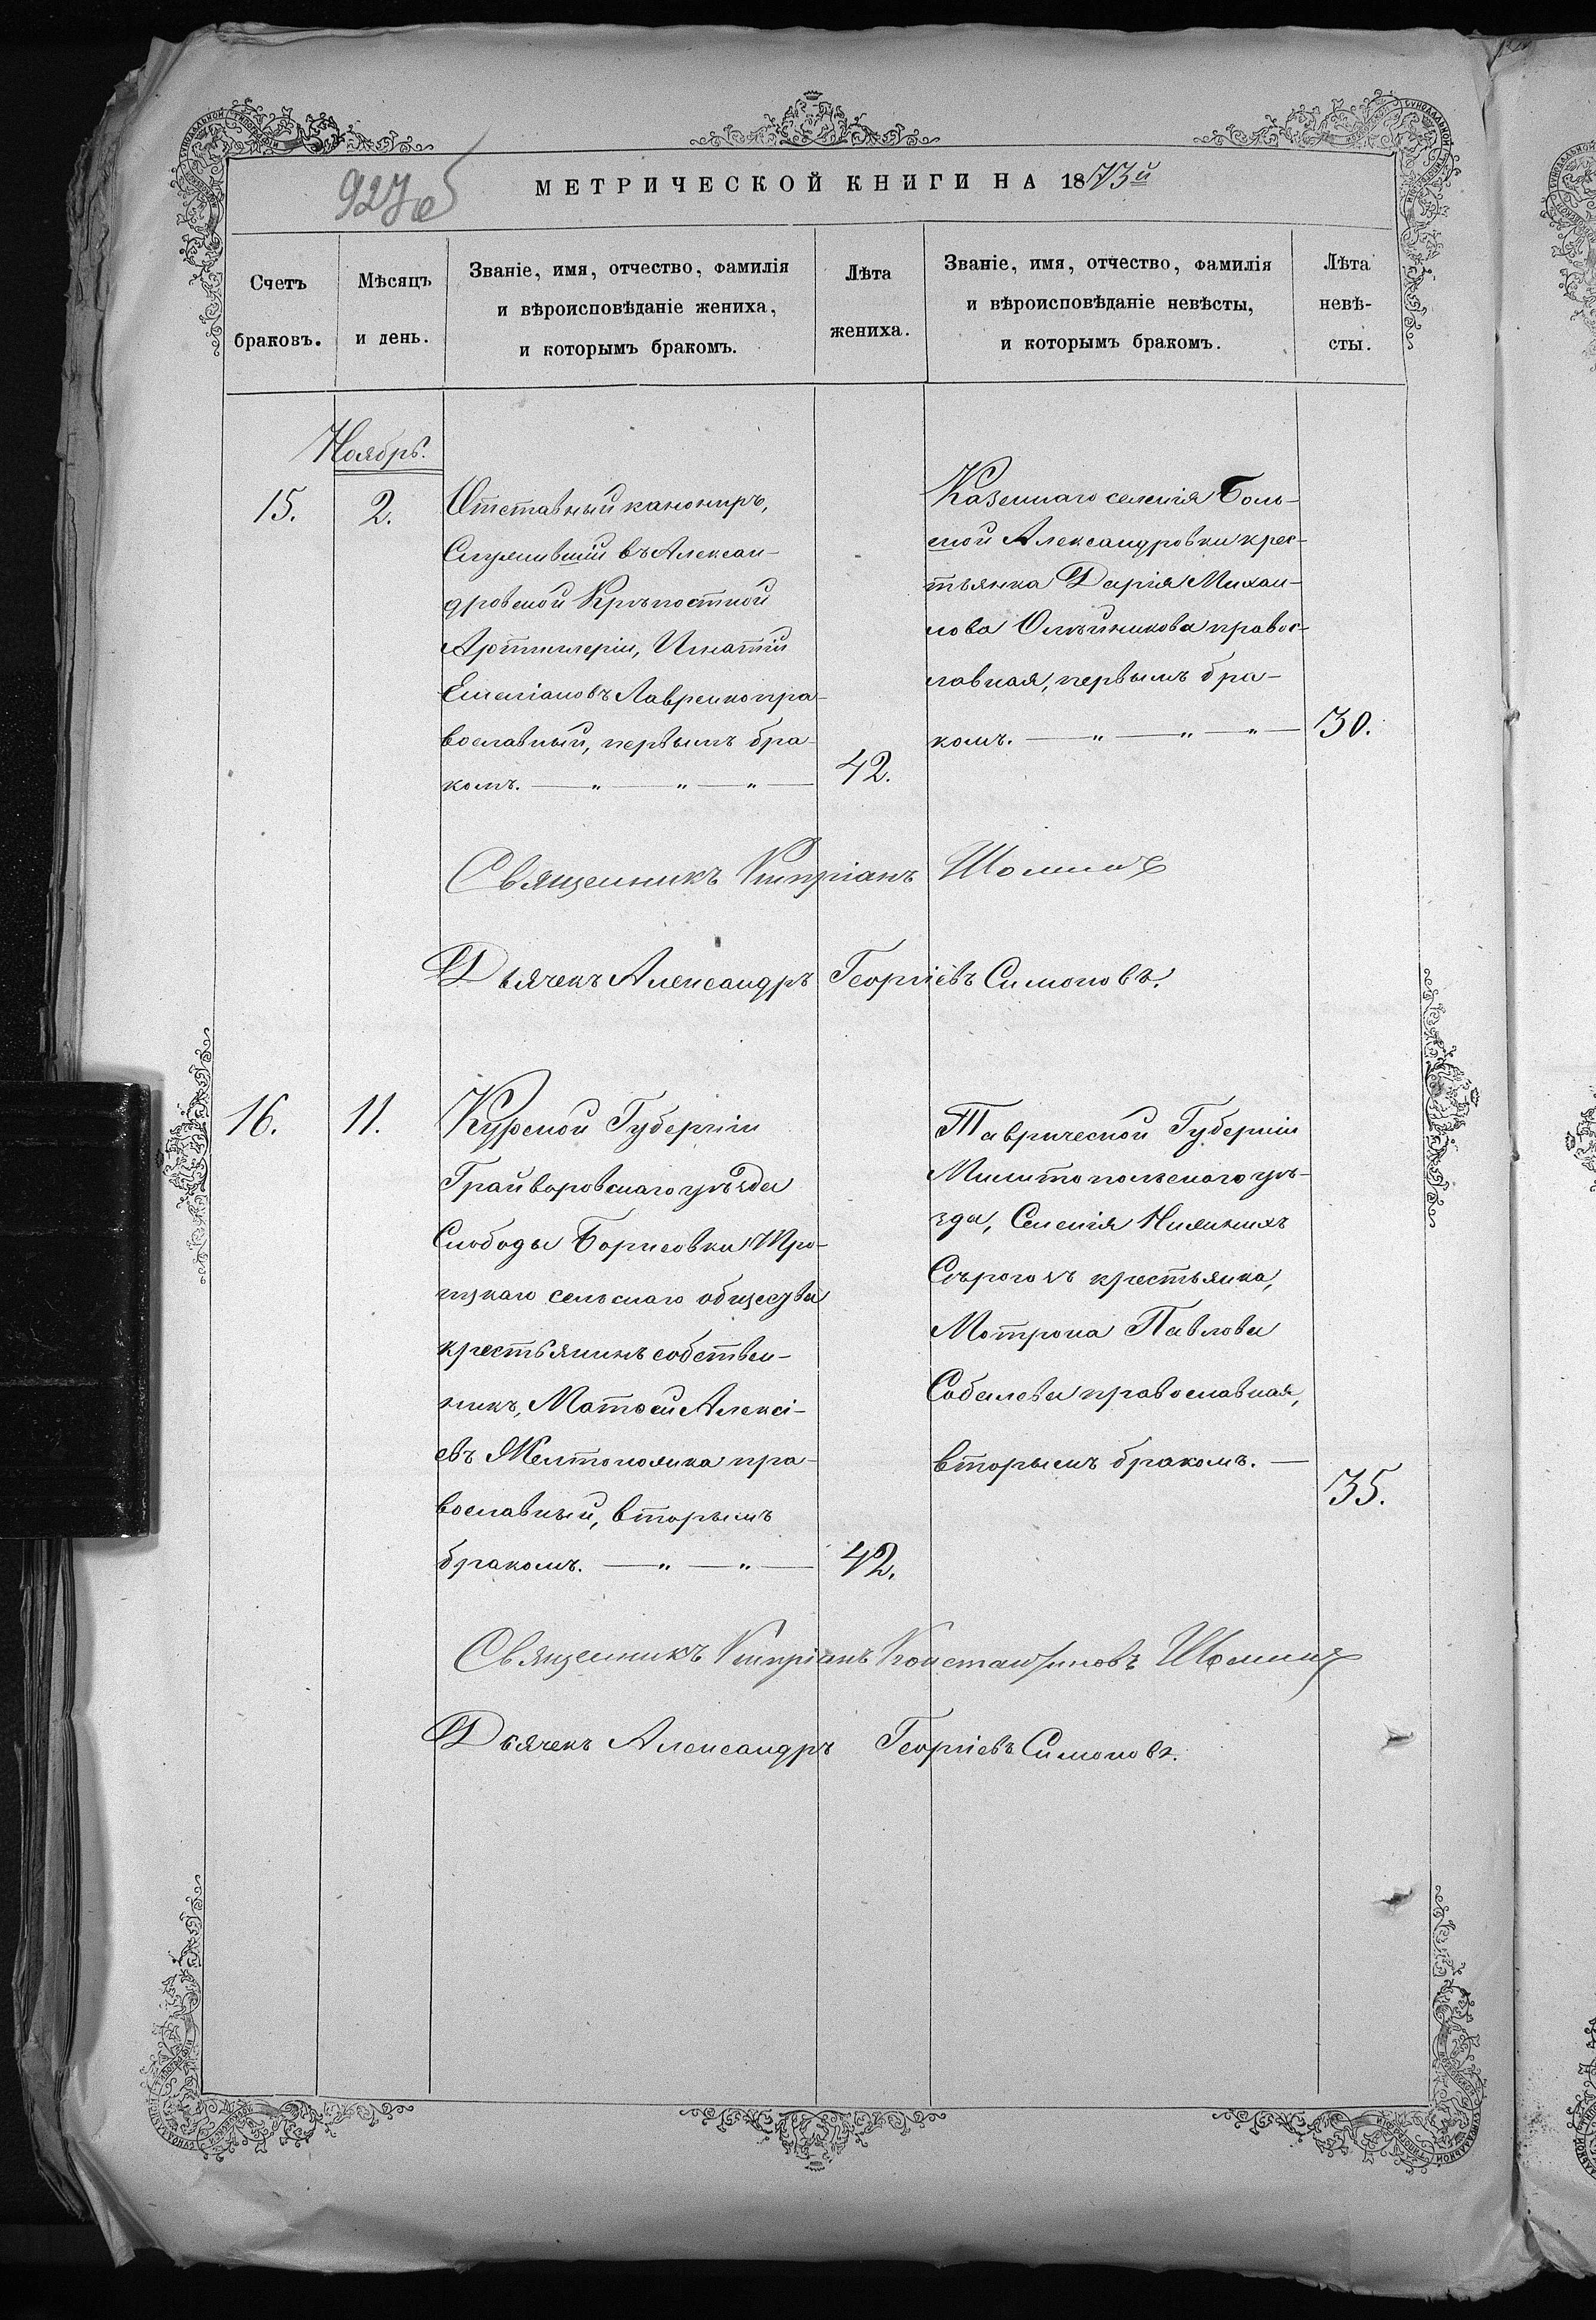 927 об
МЕТРИЧЕСКОЙ КНИГИ НА 1873й
Счетъ браковъ.
Мѣсяцъ и день.
Званіе, имя, отчество, фамилія и вѣроисповѣданіе жениха, и которымъ бракомъ.
Лѣта жениха.
Званіе, имя, отчество, фамилія и вѣроисповѣданіе невѣсты, и которымъ бракомъ.
Лѣта невѣ-сты.
Ноябрь.
15.
2.
Отставный канониръ,
Служившій въ Алексан-
дровской Крѣпостной
Артиллеріи, Игнатій
Емеліановъ Лавренко пра-
вославный, первымъ бра-
комъ. — „ — „ — „ —
42.
Казеннаго селенія Боль-
шой Александровки крес-
тьянка Дарія Михаи-
лова Олѣйникова правос-
лавная, первымъ бра-
комъ. — „ — „ — „ —
30.
Священникъ Кипріанъ
Дьячекъ Александръ Георгіевъ Симоновъ.
16.
11.
Курской Губерніи
Грайворовскаго уѣзда
Слободы Борисовки Тро-
ицкаго сельскаго общества
крестьянинъ собствен-
никъ, Матѳей Алексі-
евъ Желтополика пра-
вославный, вторымъ
бракомъ. — „ — „ —
42.
Таврической Губерніи
Милитопольскаго уѣ-
зда, Селенія Нижнихъ
Сѣрогозъ крестьянка,
Мотрона Павлова
Собалева православная,
вторымъ бракомъ. —
35.
Священникъ Кипріанъ Константиновъ
Дьячекъ Александръ Георгіевъ Симоновъ.